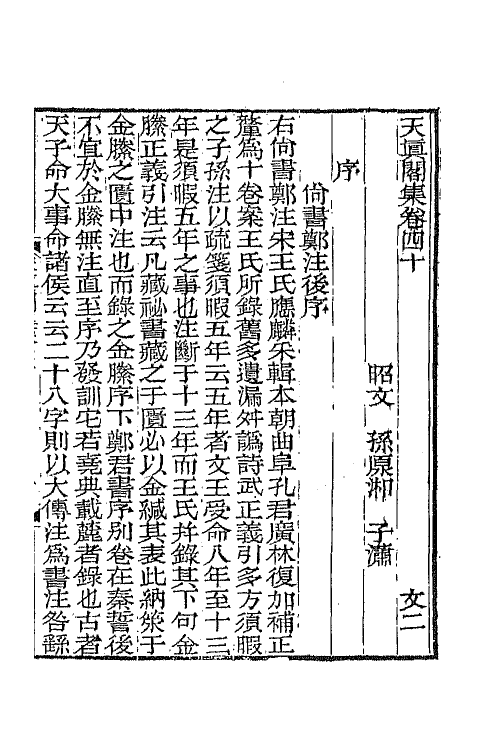 天真閣集卷四十 文二
昭文 孫原湘 子瀟
序
尙書鄭注後序
右尙書鄭注宋王氏應麟采輯本朝曲阜孔君廣林復加補正
釐爲十卷案王氏所錄舊多遺漏舛譌詩武正義引多方須暇
之子孫注以疏箋須暇五年云五年者文王受命八年至十三
年是須暇五年之事也注斷于十三年而王氏幷錄其下句金
縢正義引注云凡藏祕書藏之于匱必以金緘其表此納筴于
金縢之匱中注也而錄之金縢序下鄭君書序別卷在秦誓後
不宜於金縢無注直至序乃發訓它若堯典載麓者錄也古者
天子命大事命諸侯云云二十八字則以大傳注爲書注咎繇